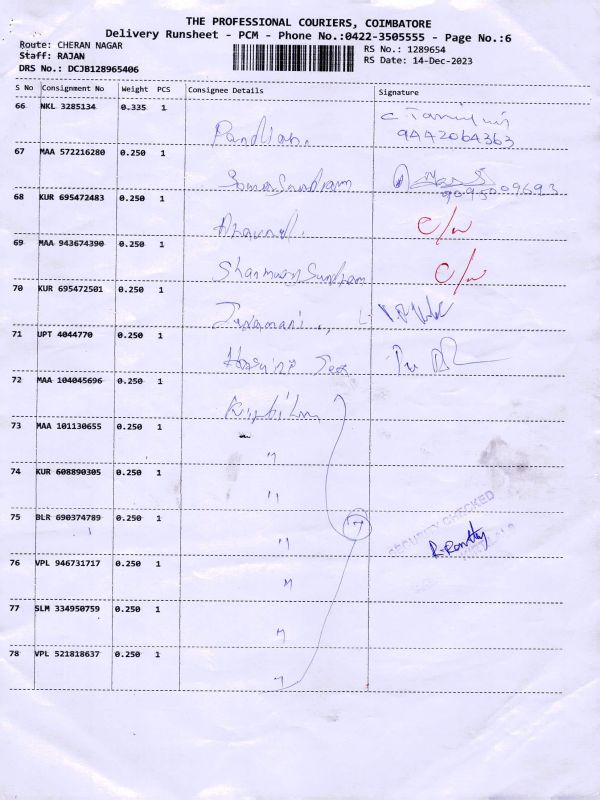 THE PROFESSIONAL COURIERS, COIMBATORE
Delivery Runsheet - PCM - Phone No.:0422-3505555 - Page No.:6
Route: CHERAN NAGAR
RS No.: 1289654
Staff: RAJAN
RS Date: 14-Dec-2023
DRS No.: DCJB128965406
S No Consignment No Weight PCS Consignee Details Signature
66 NKL 3285134 0.335 1
Pandian.
9442064363
67 MAA 572216280 0.250 1
SomaSundram
9095009693
68 KUR 695472483 0.250 1
Aravind.
C/w
69 MAA 943674390 0.250 1
ShanmugaSundram
C/w
70 KUR 695472501 0.250 1
71 UPT 4044770 0.250 1
72 MAA 104045696 0.250 1
73 MAA 101130655 0.250 1
"
74 KUR 608890305 0.250 1
"
75 BLR 690374789 0.250 1
7
"
SECURITY CHECKED
76 VPL 946731717 0.250 1
"
77 SLM 334950759 0.250 1
"
78 VPL 521818637 0.250 1
"